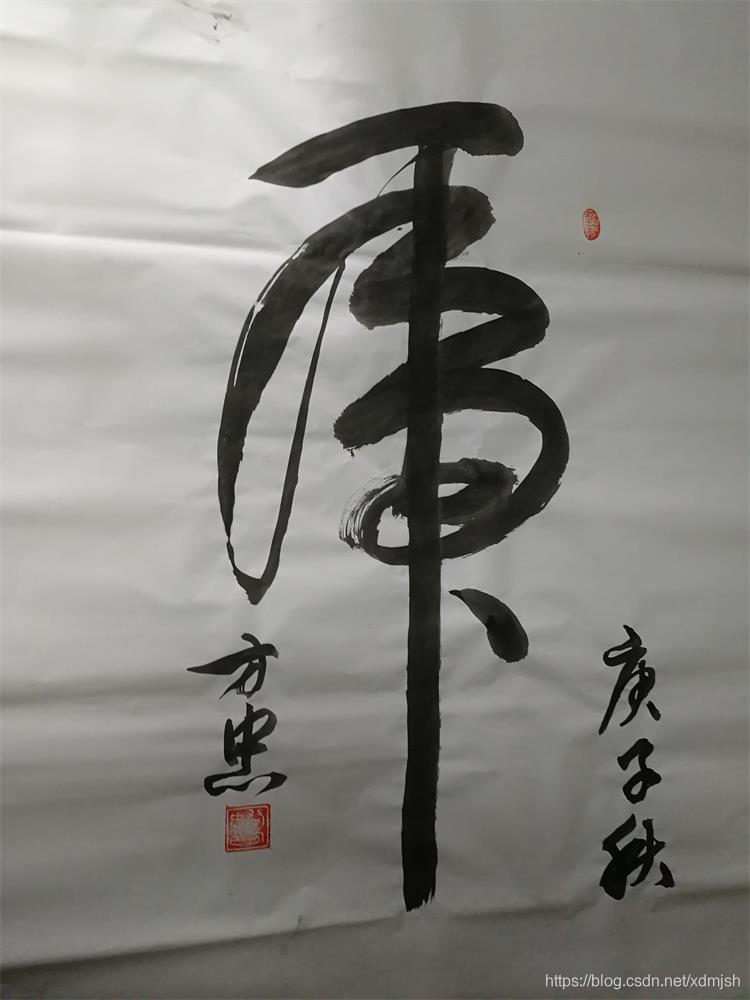 虎
庚子秋
方忠
https://blog.csdn.net/xdmjsh